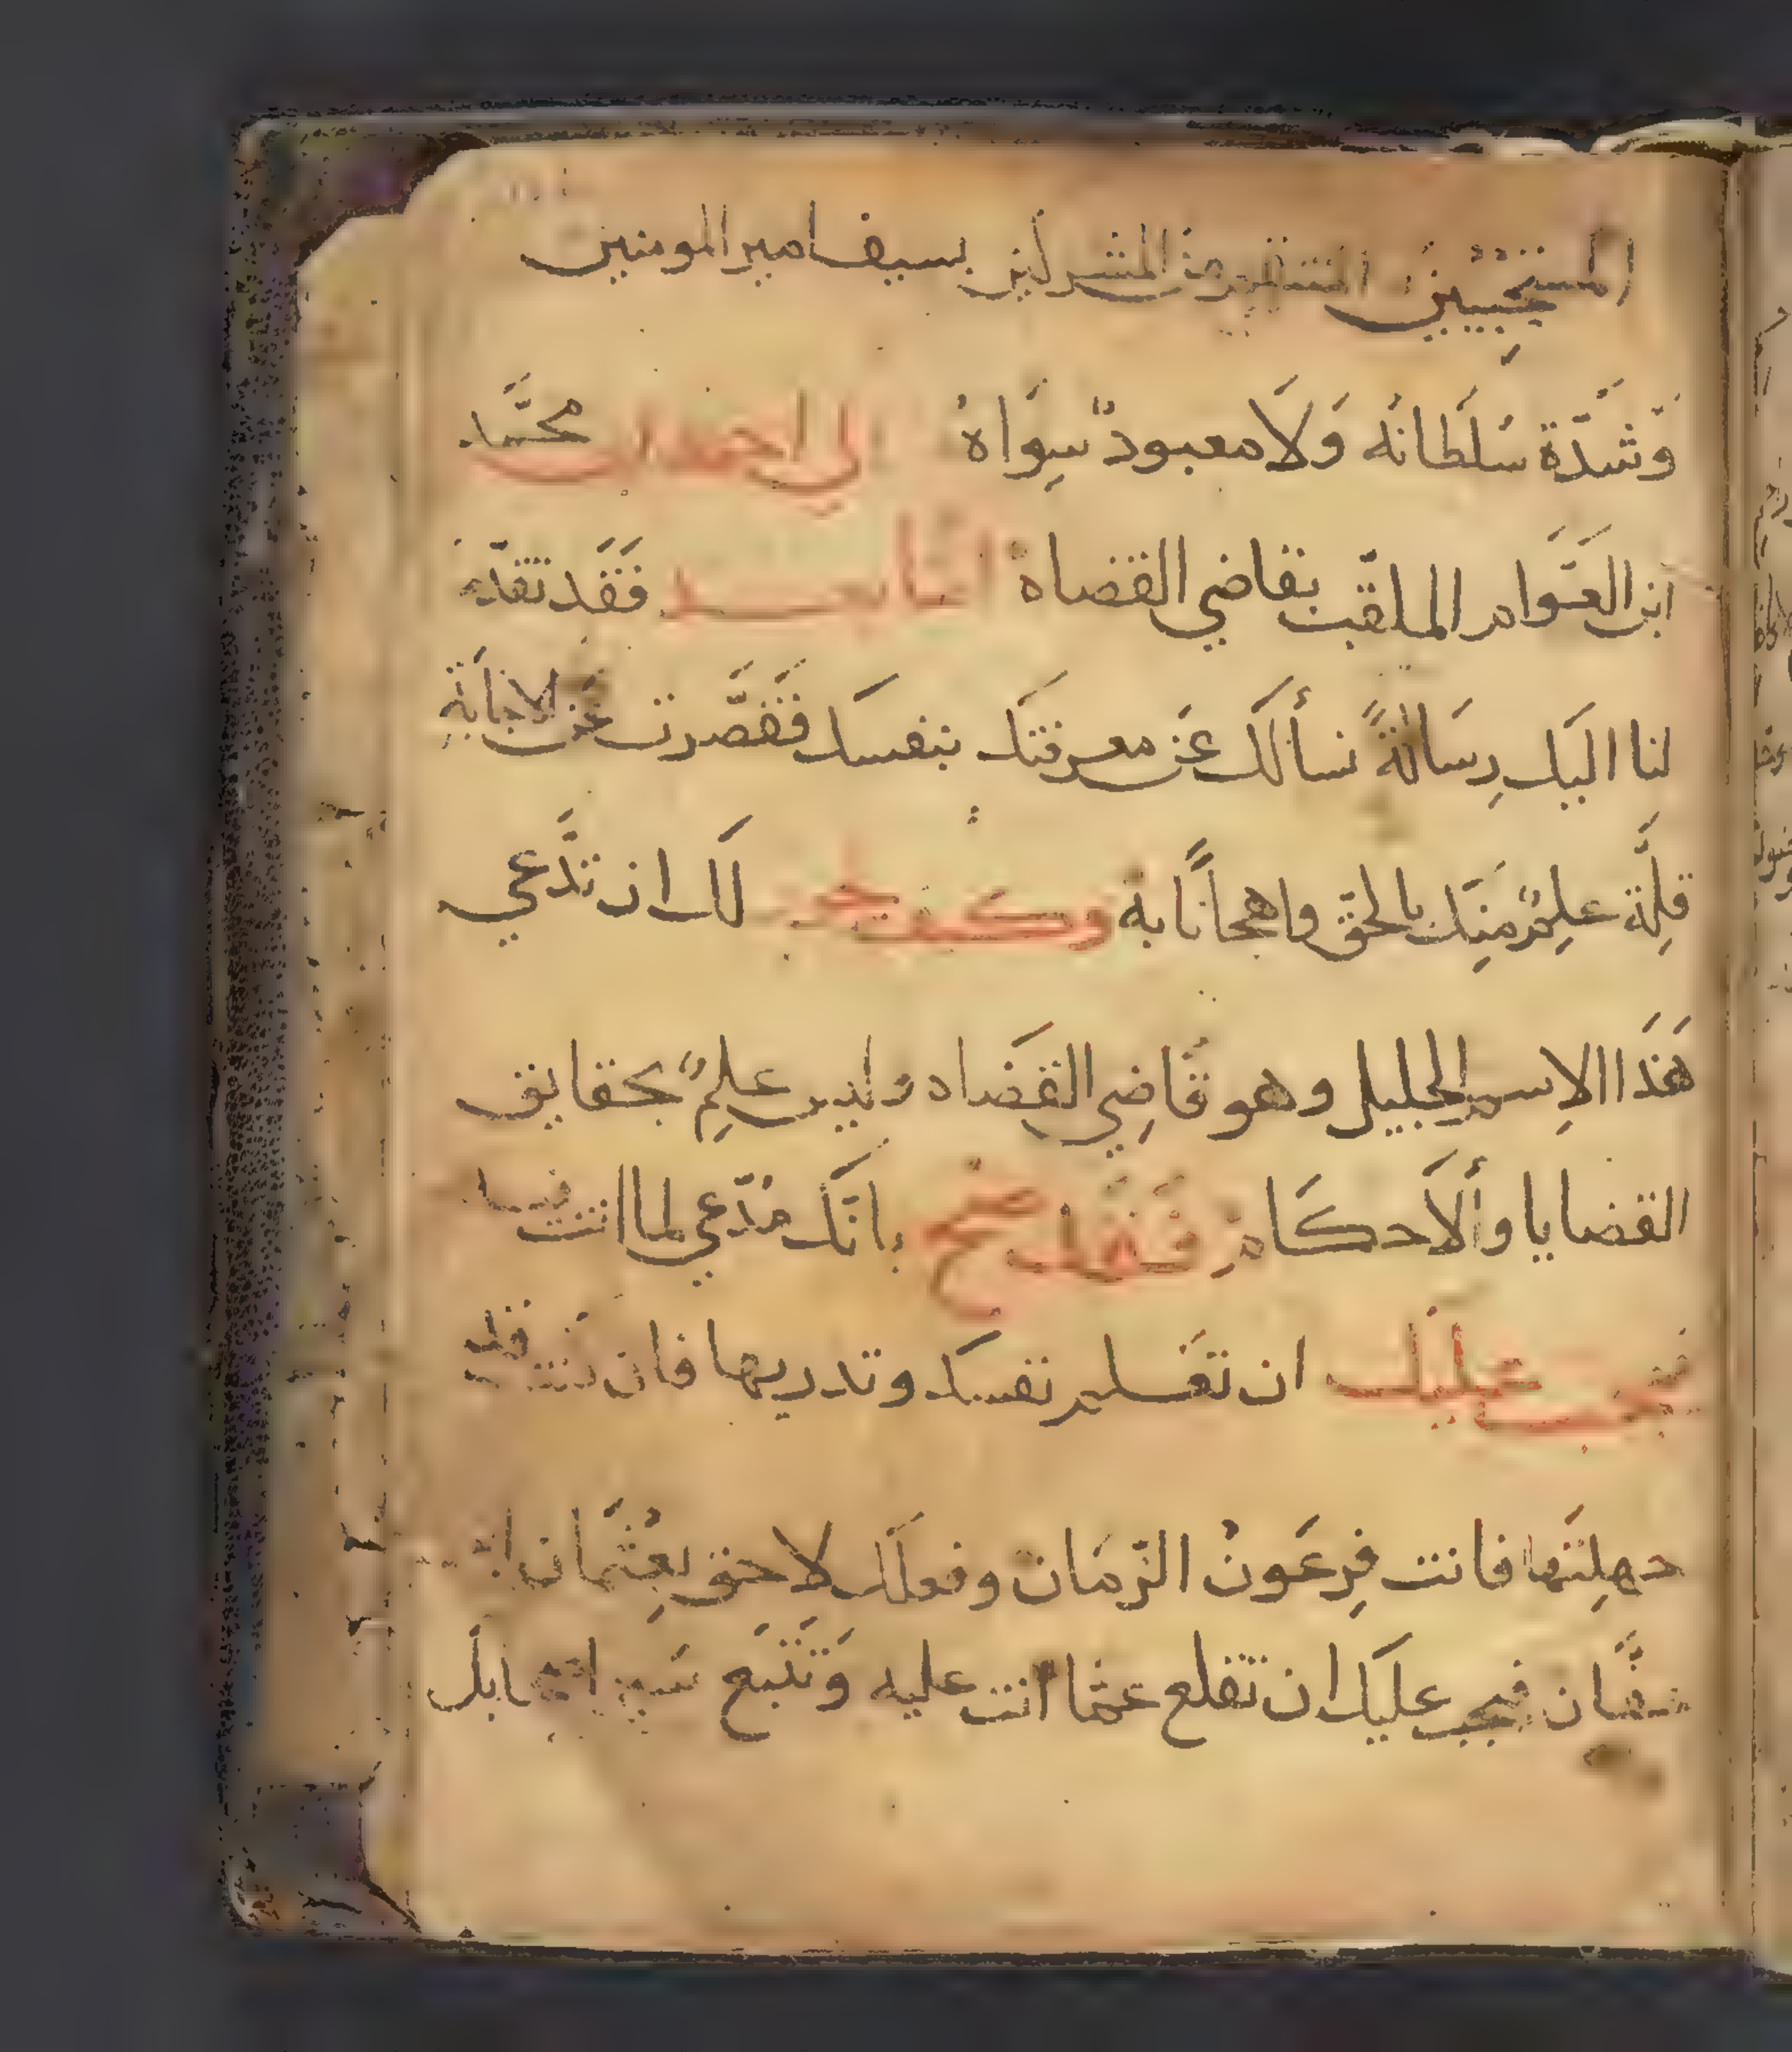 المستجيبين المنتقم من المشركين بسيف امير المومنين
وَّشَدّة سُلَطانُه وَلَا معبودٌ سِوَاهُ الى احمد ابن محمَّد
ابن العَوَّام الملقّب بقاضي القضاه امّا بعد فَقَد تقدّم
لنا اليك رِسَالةً نسألَك عَن معرفتَك بنفسَك فَقَصَّرت عَن الاجَابَة
قلِّة علِمٌ مِنَك بالحقّ واهجاناً به وكيف يجوز لَك ان تدَّعي
هَذَا الاِسم الجليل وهو قَاضِي القَضاه وليس علِمٌ بحقايق
القضايا وألاَحكَام فَقَد صح بانَّك مُدّعي لما انت فيه
فيجب عليَك ان تعَلم نفسَك وتدريها فان كنت قد
جهلِتَها فانت فِرعَونُ الزّمَان وفعلَك لاحق بعِثُمَان ابن
عفَّان فيجب عليَك ان تقلع عمّا انت عليه وَتَتبَع